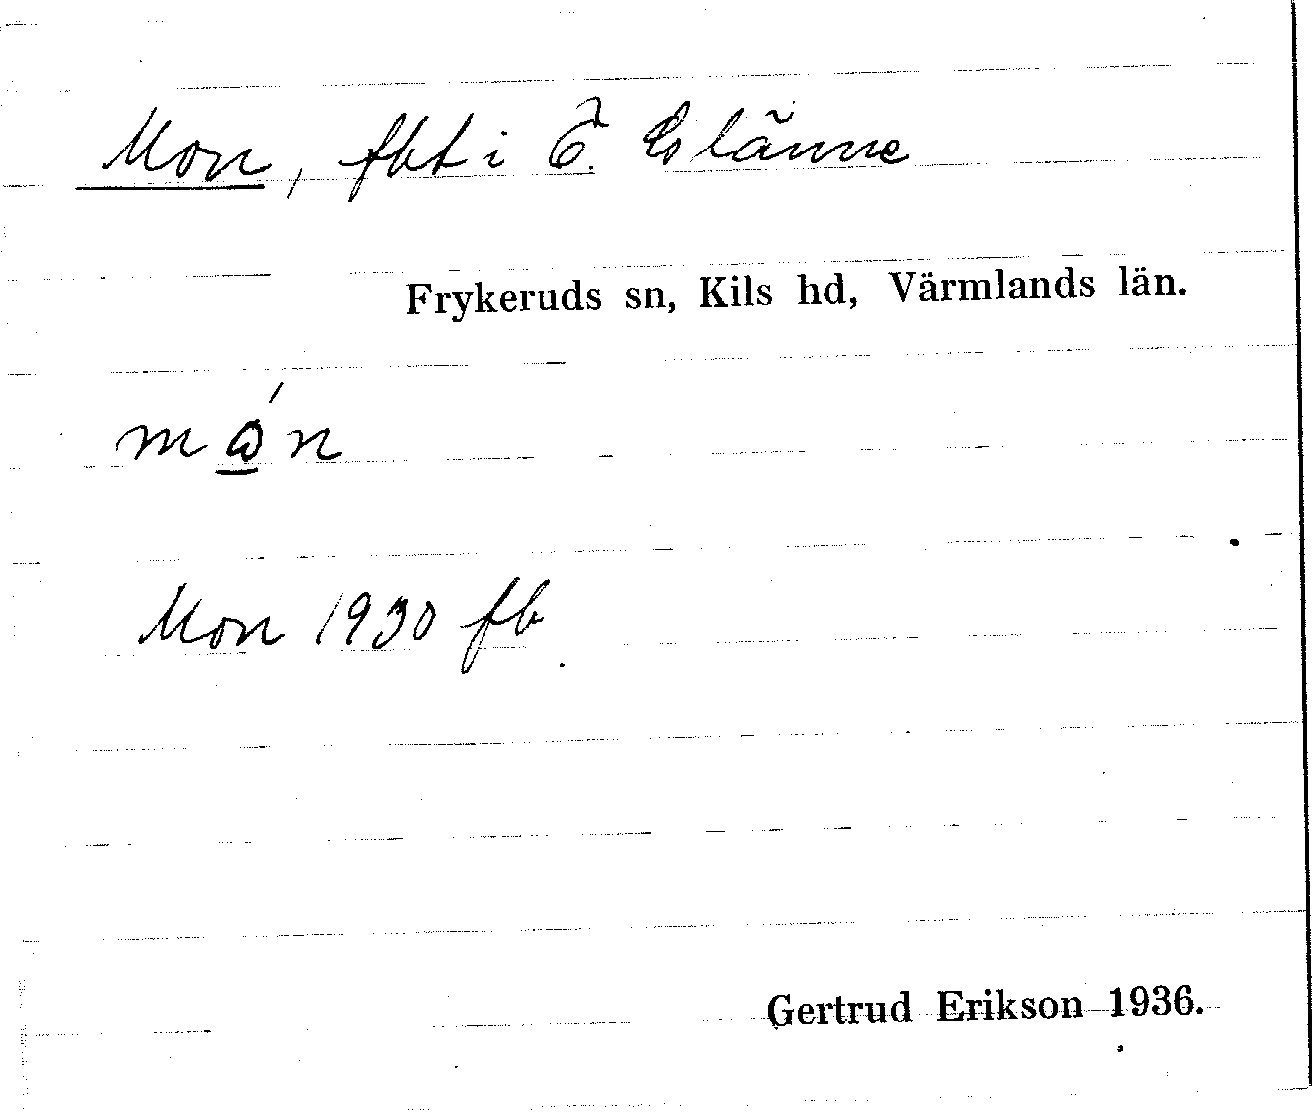 Mon, fbt i Ö. Glänne
Frykeruds sn, Kils hd, Värmlands län.
Mon 1930 fb.
Gertrud Erikson 1936.